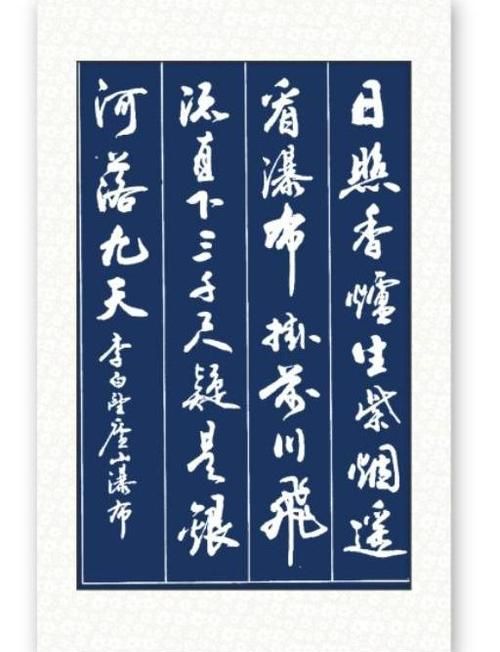 日照香爐生紫烟遥
看瀑布掛前川飛
流直下三千尺疑是銀
河落九天 李白望廬山瀑布